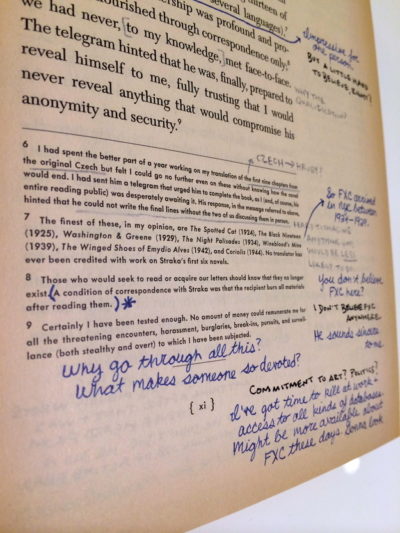 thirteen of
several languages)?
ership was profound and pro-
flourished through correspondence only.⁸
we had never, [to my knowledge,] met face-to-face.
The telegram hinted that he was, finally, prepared to
reveal himself to me, fully trusting that I would
never reveal anything that would compromise his
anonymity and security.⁹
Impressive for
one person!
BUT A LITTLE HARD
TO BELIEVE, RIGHT?
WHY THE
QUALIFICATION?
CZECH → 
6 I had spent the better part of a year working on my translation of the first nine chapters from
the original Czech but felt I could go no further on these without knowing how the novel
would end. I had sent him a telegram that urged him to complete the book, as I (and, of course, his
entire reading public) was desperately awaiting it. His response, in the message referred to above,
hinted that he could not write the final lines without the two of us discussing them in person.
7 The finest of these, in my opinion, are The Spotted Cat (1924), The Black Nineteen
(1925), Washington & Greene (1929), The Night Palisades (1934), Wineblood's Mine
(1939), The Winged Shoes of Emydio Alves (1942), and Coriolis (1944). No translator has
ever been credited with work on Straka's first six novels.
8 Those who would seek to read or acquire our letters should know that they no longer
exist. (A condition of correspondence with Straka was that the recipient burn all materials
after reading them.) *
9 Certainly I have been tested enough. No amount of money could remunerate me for
all the threatening encounters, harassment, burglaries, break-ins, pursuits, and surveil-
lance (both stealthy and overt) to which I have been subjected.
So FXC arrived
in NYC between
You don't believe
FXC here?
I DON'T BELIEVE FXC
ANYWHERE.
He sounds sincere
to me.
Why go through all this?
What makes someone so devoted?
COMMITMENT TO ART? POLITICS?
I've got time to kill at work +
access to all kinds of databases.
Might be more available about
FXC these days. Gonna look
{ xi }